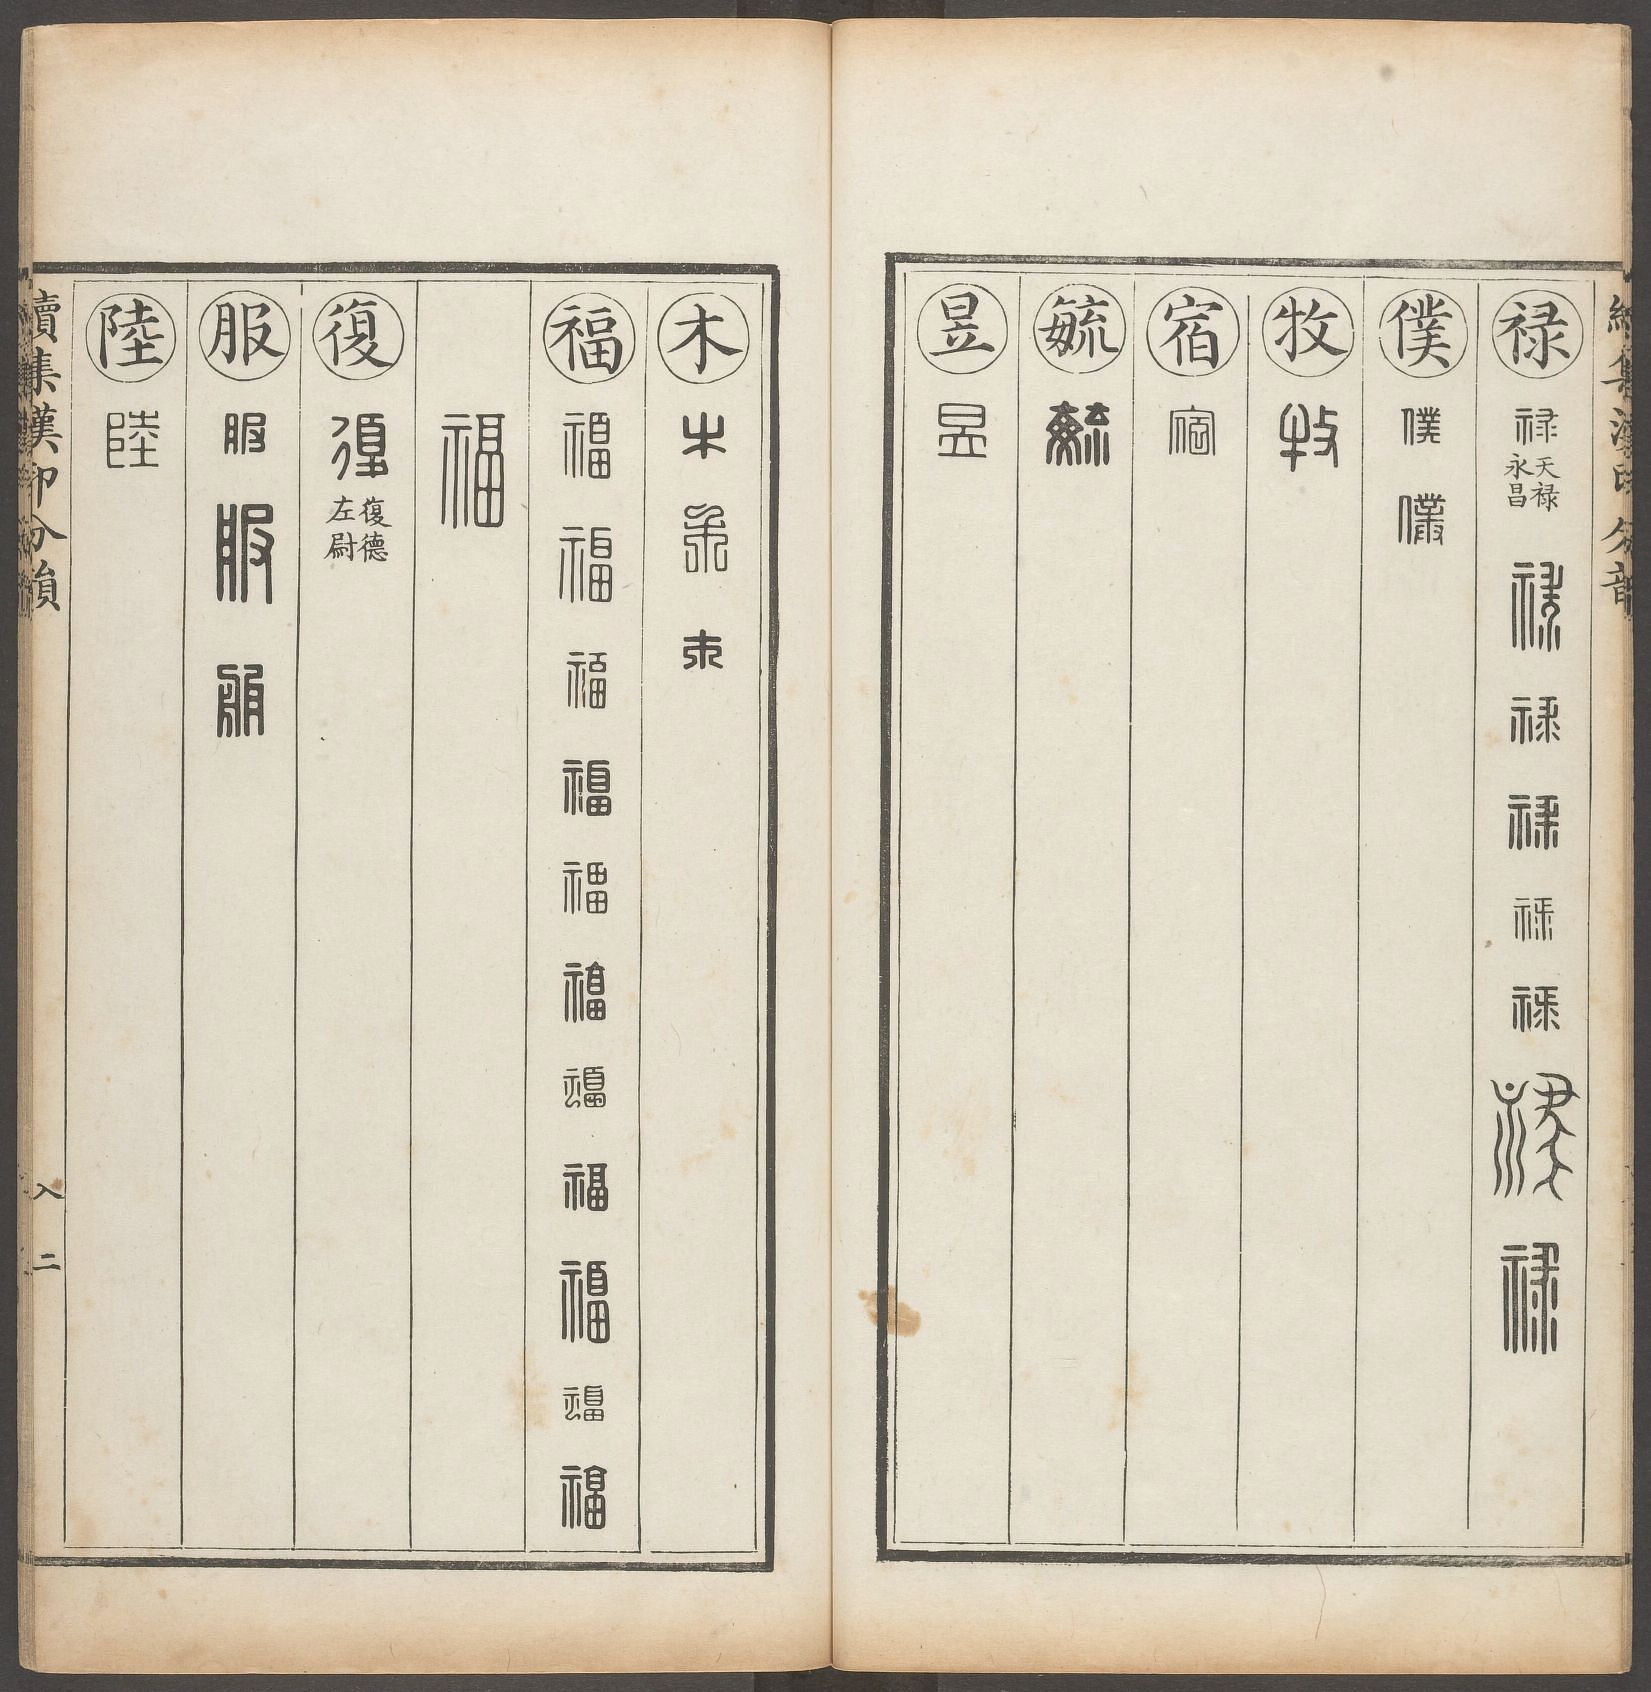 續集漢印分韻
禄 禄 天禄永昌 禄 禄 禄 禄 禄 禄 禄
僕 僕 僕
牧 牧
宿 宿
毓 毓
昱 昱
木 木 木 木
福 福 福 福 福 福 福 福 福 福 福 福
福
復 復 復德左尉
服 服 服 服
陸 陸
續集漢印分韻 入 二